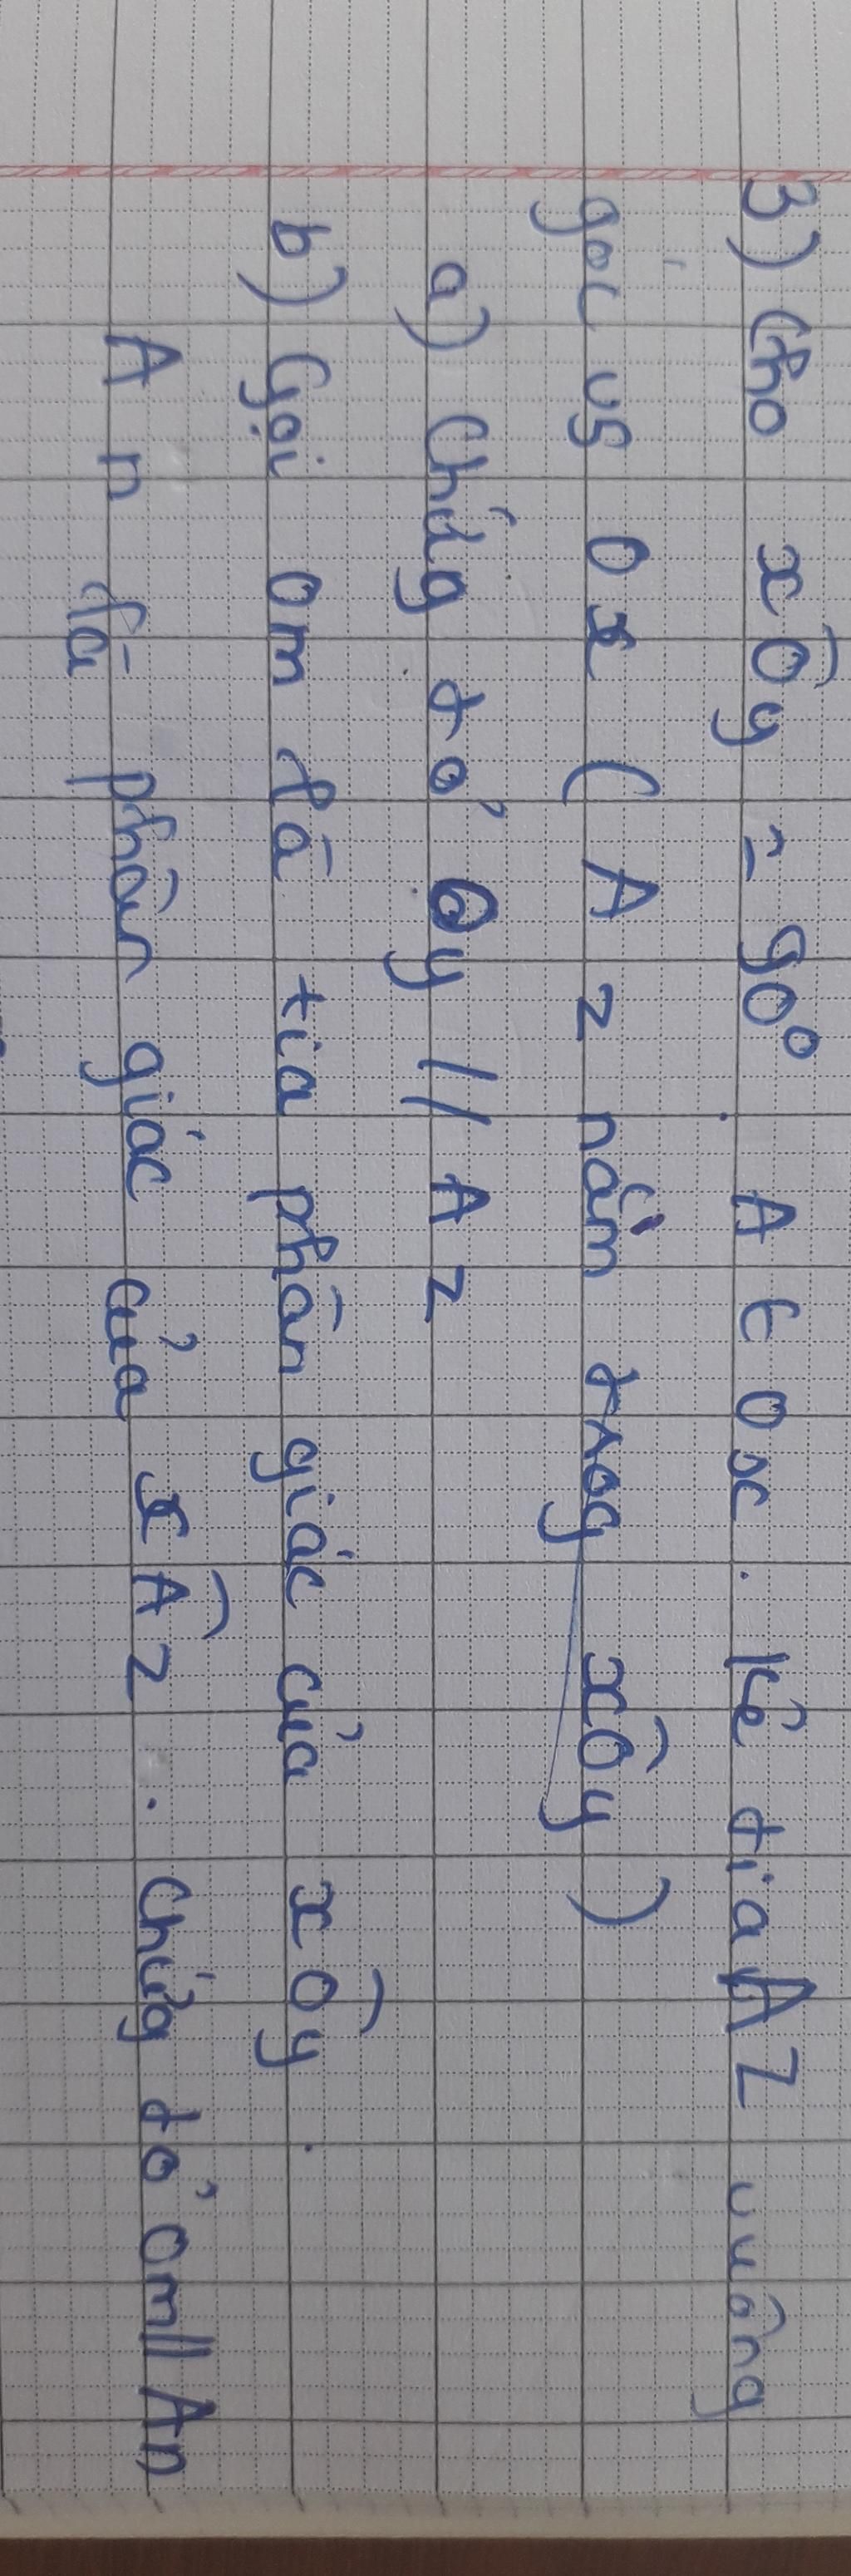 3) Cho xÔy = 90° . A ∈ Ox . Kẻ tia Az vuông
góc vs Ox ( Az nằm trog xÔy )
a) Chứg tỏ Oy // Az
b) Gọi Om là tia phân giác của xÔy .
An là phân giác của xÂz . Chứg tỏ Om // An